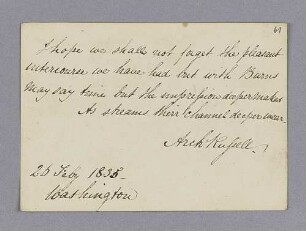 61
I hope we shall not forget the pleasant
intercourse we have had but with Burns
may say time but the impression deeper makes
As streams their channel deeper wear.
Arch Russell.
26 Feby 1835
Washington